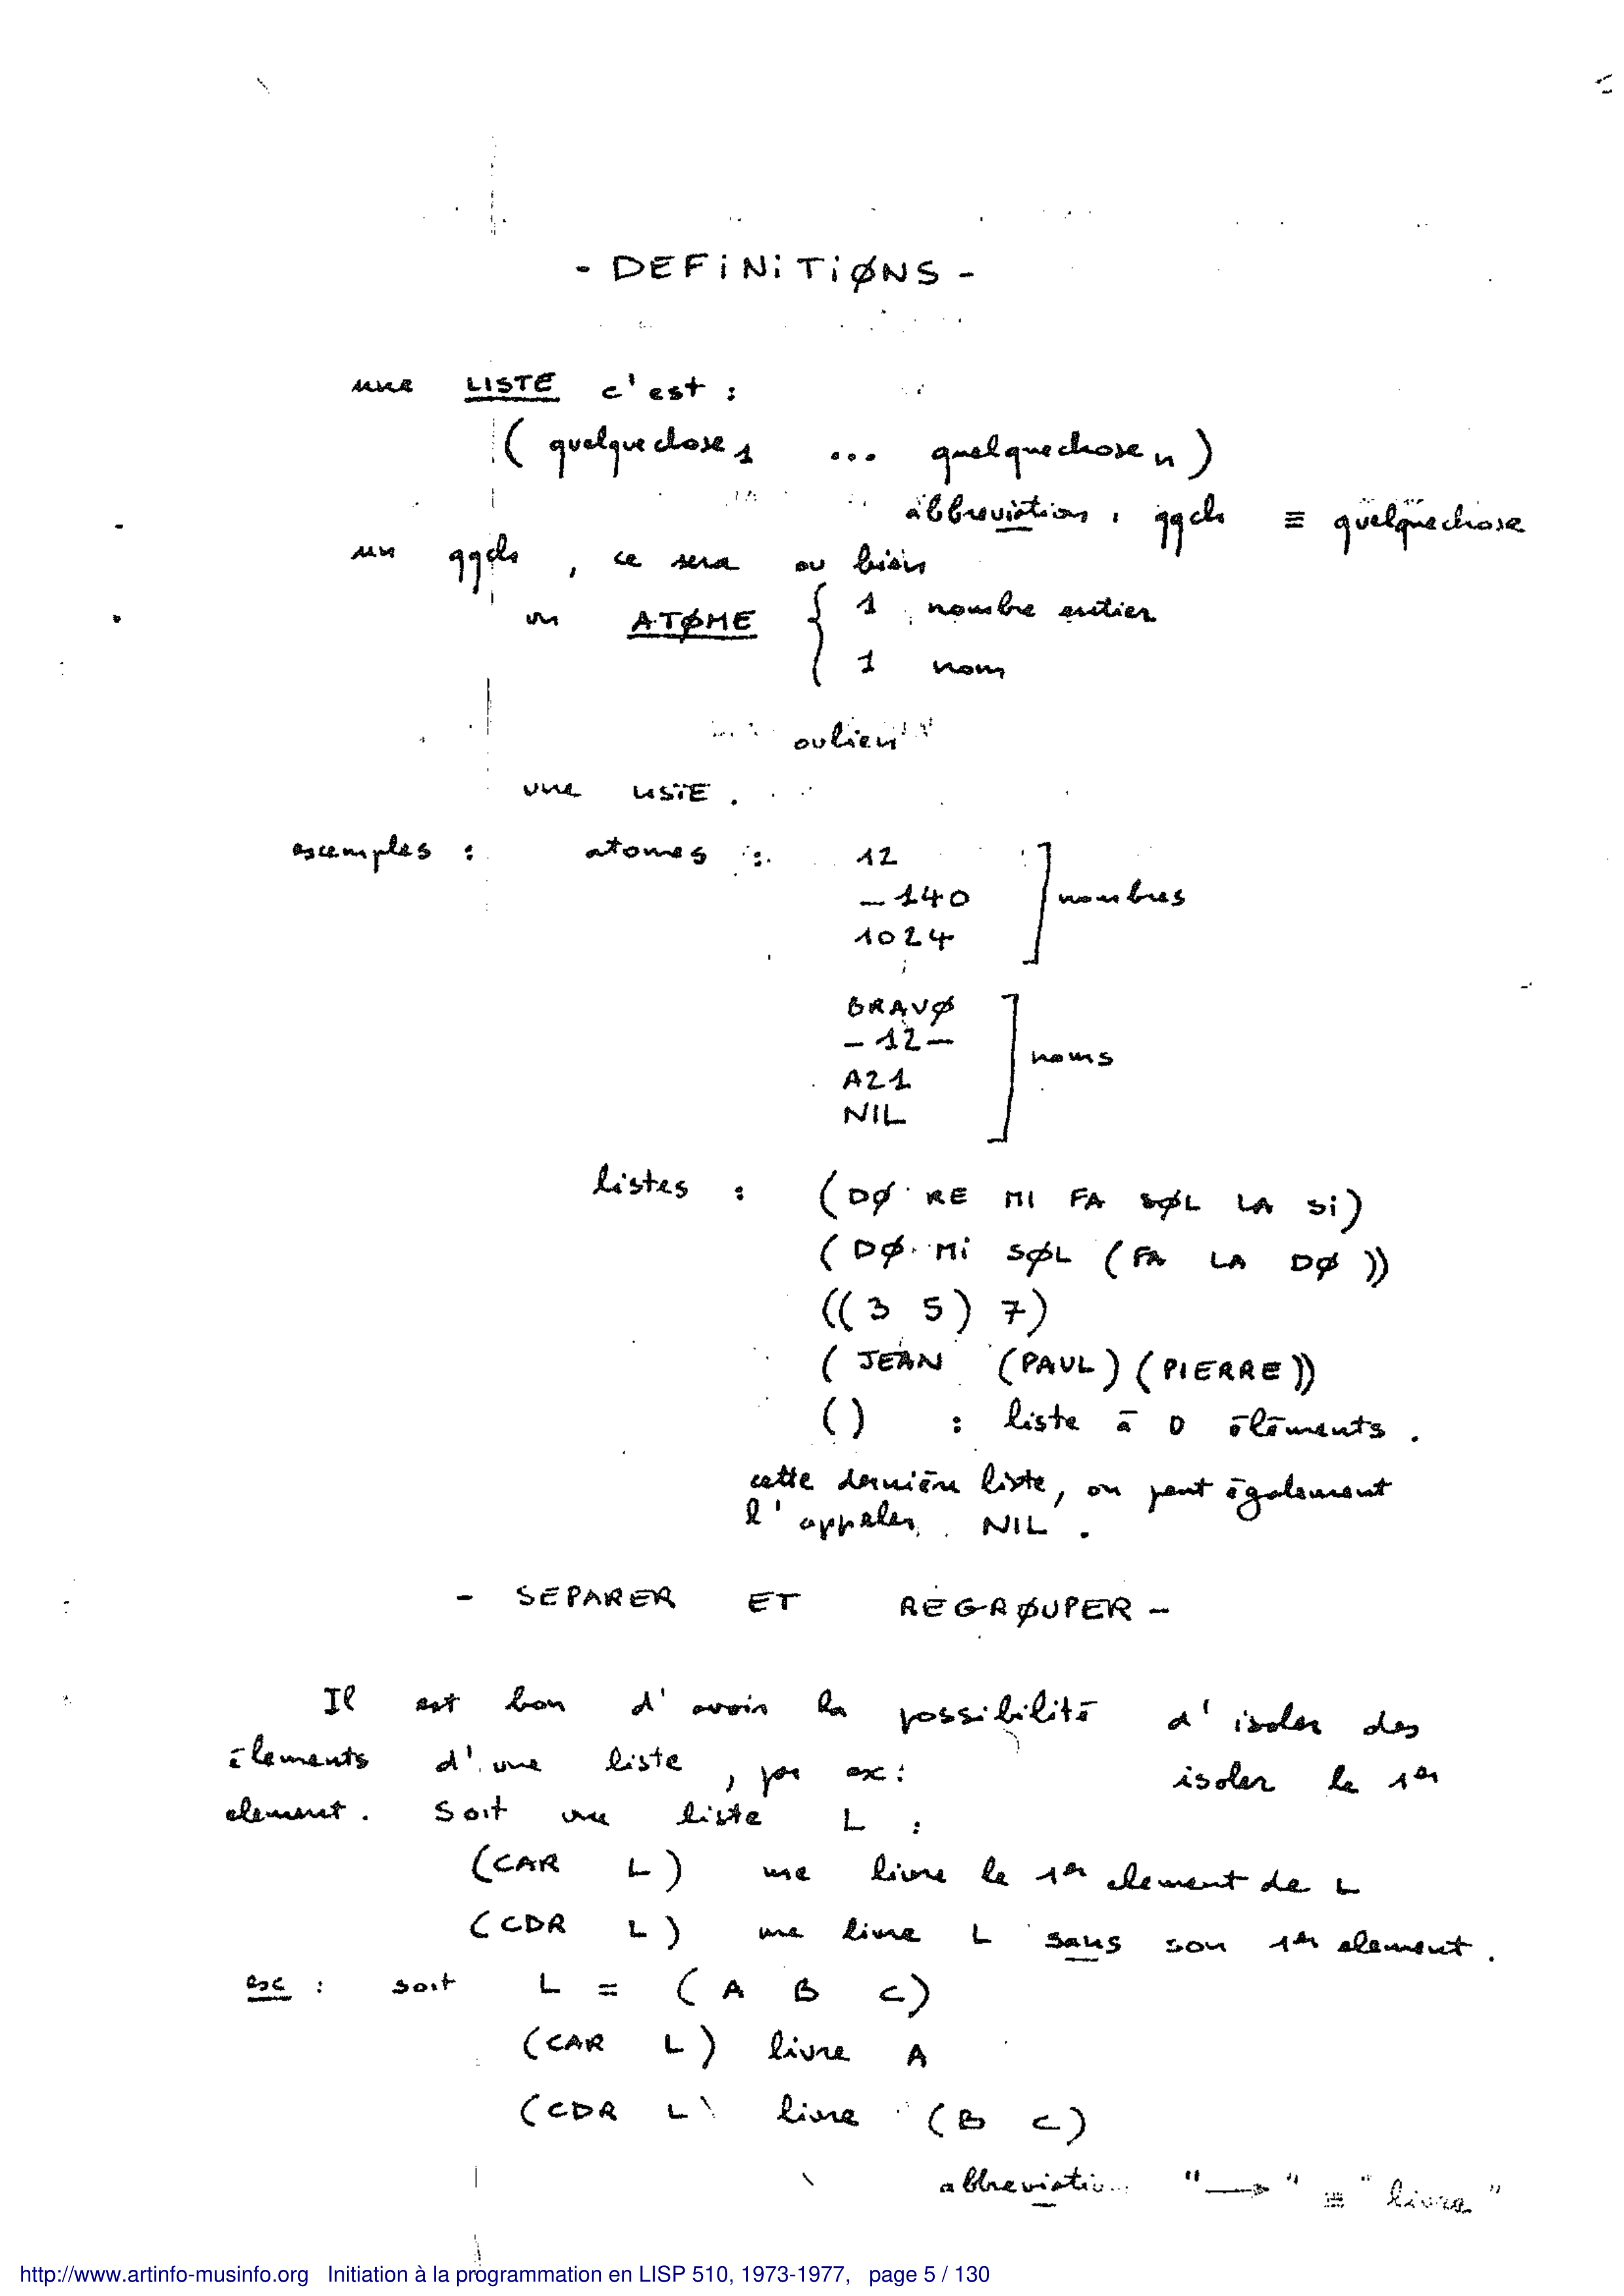 - DEFiNiTiØNS -
une LISTE c'est :
( quelquechose 1 ... quelquechose n )
abbreviation : qqch ≡ quelquechose
un qqch , ce sera ou bien
un ATØME { 1 nombre entier
1 nom
oubien
une LISTE .
exemples : atomes : 12
- 140 ] nombres
1024
BRAVØ
- 12 - ] noms
A21
NIL
listes : (DØ RE MI FA SØL LA Si)
( DØ Mi SØL ( FA LA DØ ))
(( 3 5 ) 7 )
( JEAN (PAUL) (PIERRE))
() : liste ā 0 ēlēments .
cette derniēre liste, on peut ēgalement
l'appeler NIL .
- SEPARER ET REGRØUPER -
Il est bon d'avoir la possibilitē d'isoler des
ēlements d'une liste , par ex : isoler le 1er
element . Soit une liste L :
(CAR L ) me livre le 1er element de L
(CDR L ) me livre L sans son 1er element .
ex : soit L = ( A B C )
(CAR L ) livre A
(CDR L ) livre ( B C )
abbreviation "→" ≡ "livre"
http://www.artinfo-musinfo.org Initiation à la programmation en LISP 510, 1973-1977, page 5 / 130